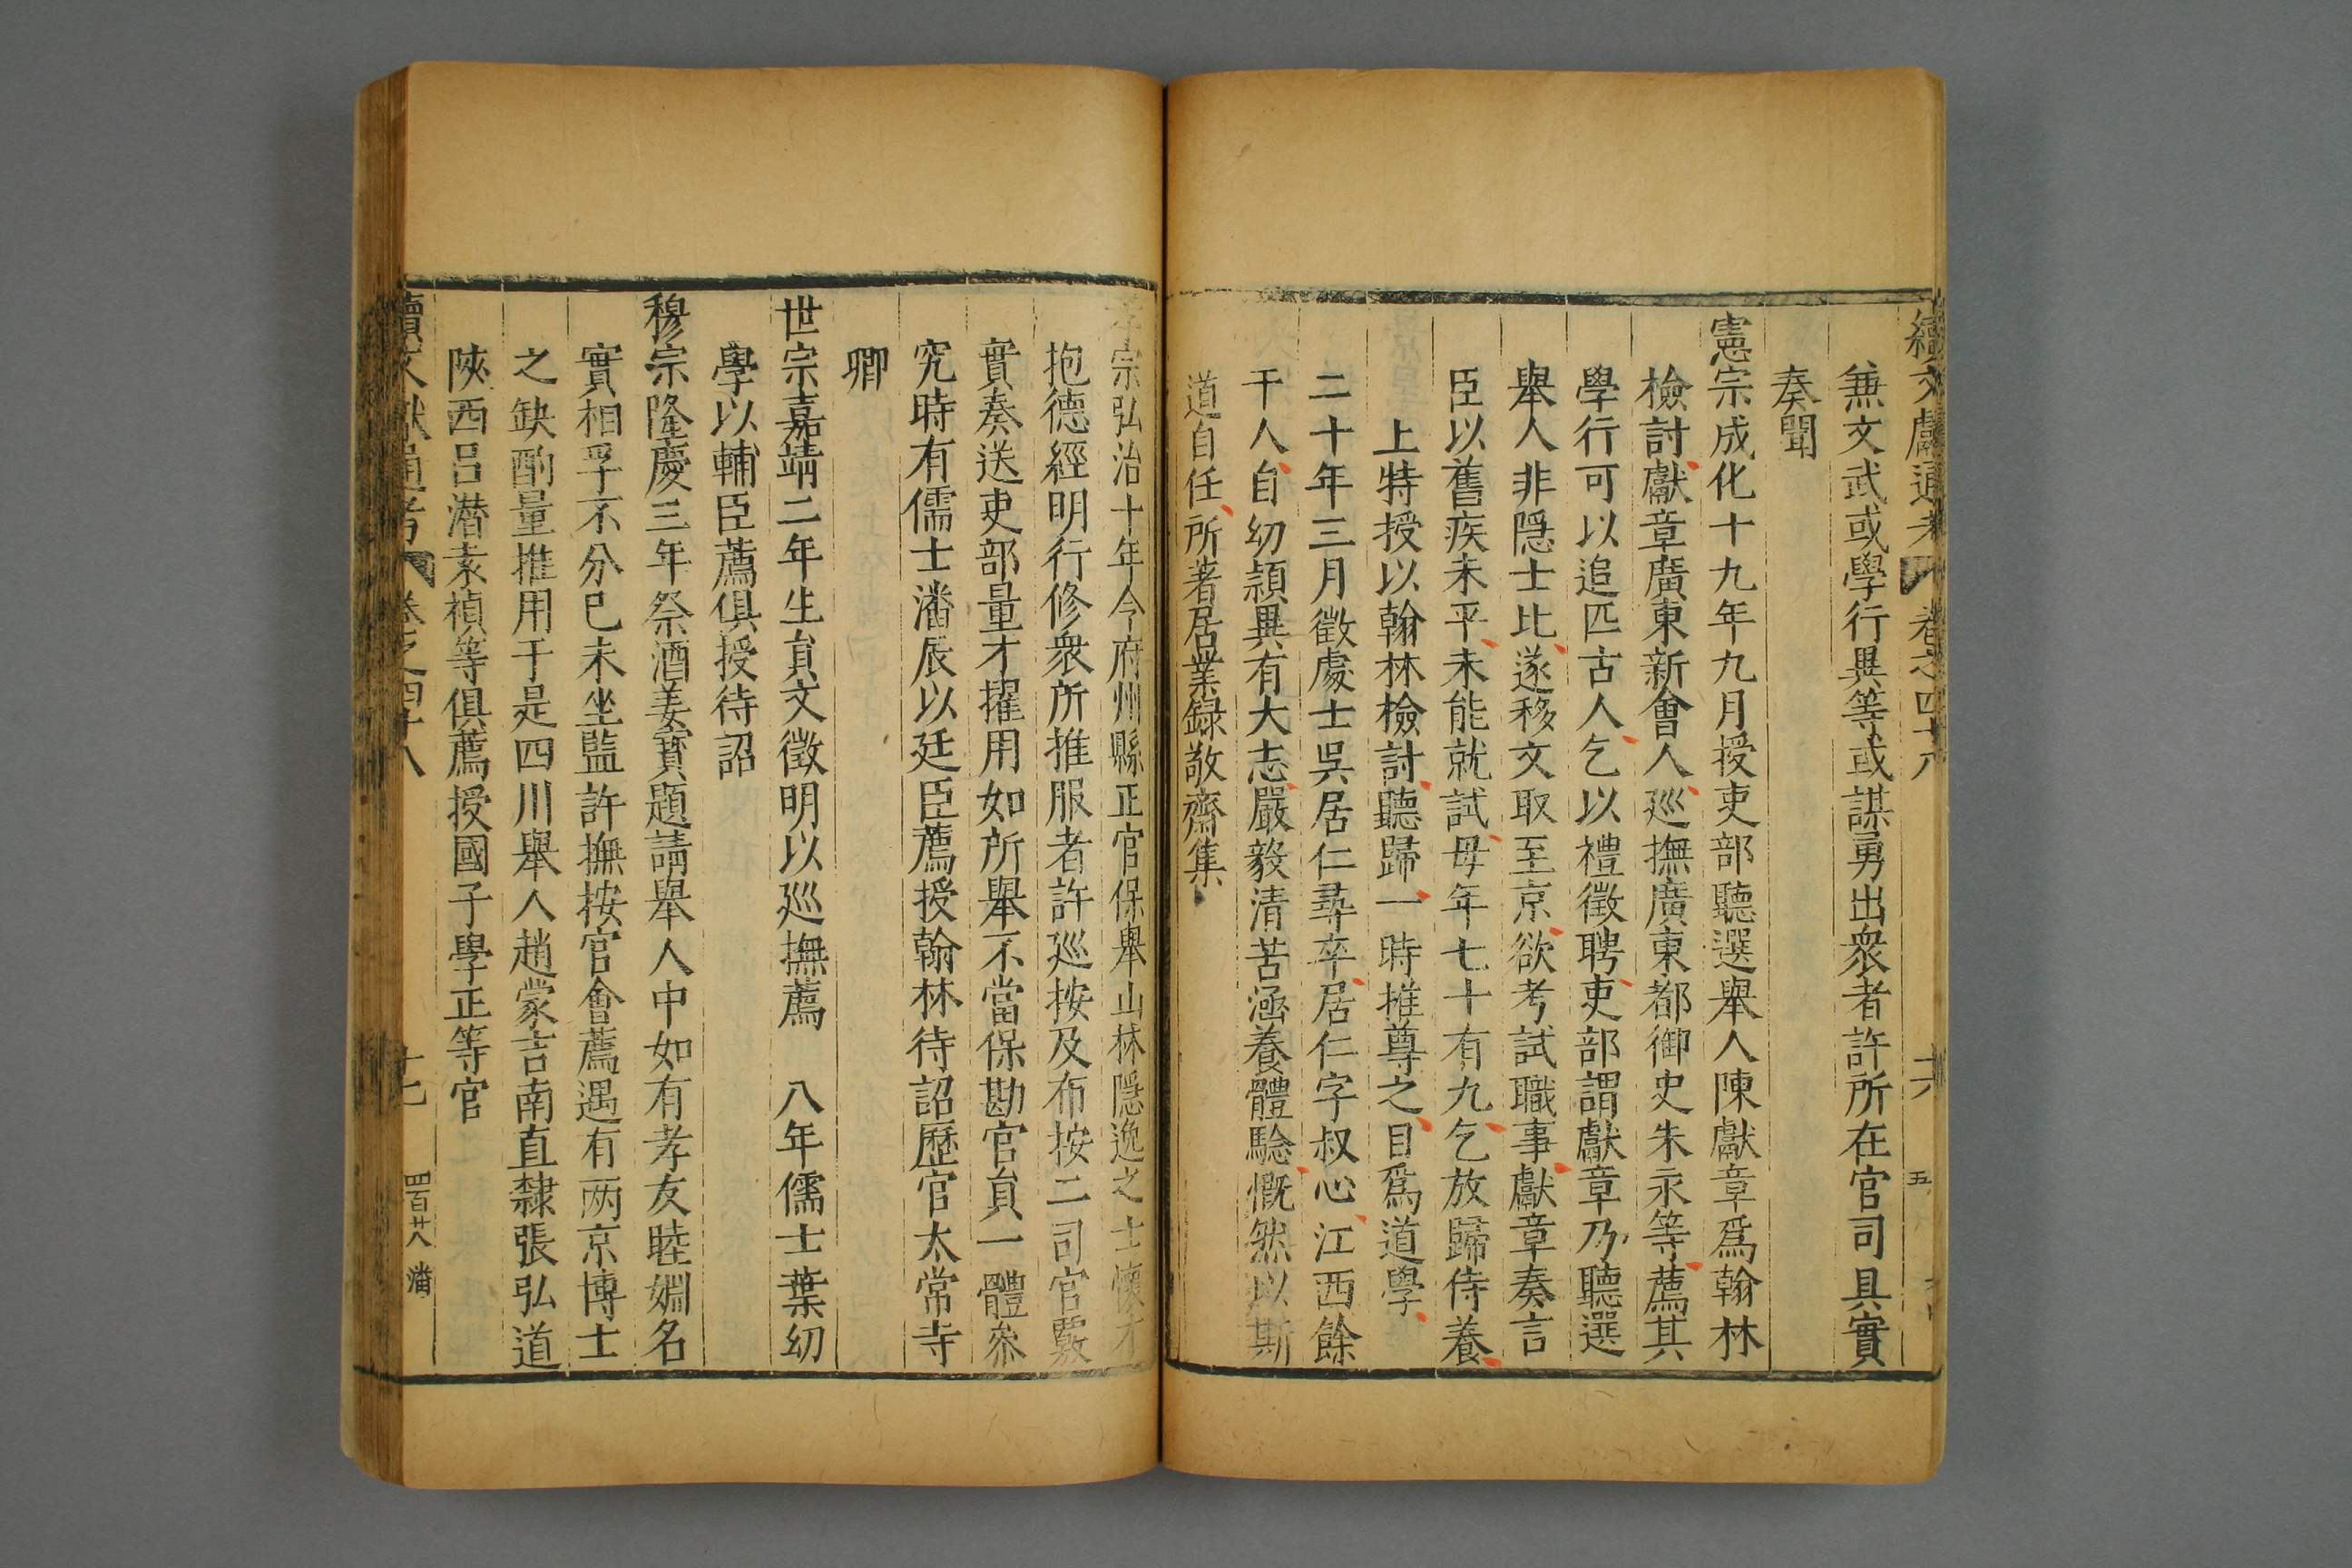 續文獻通考 卷之四十八 十六 五
兼文武或學行異等或謀勇出衆者許所在官司具實
奏聞
憲宗成化十九年九月授吏部聽選舉人陳獻章爲翰林
檢討獻章廣東新會人廵撫廣東都御史朱永等薦其
學行可以追匹古人乞以禮徵聘吏部謂獻章乃聽選
舉人非隱士比遂移文取至京欲考試職事獻章奏言
臣以舊疾未平未能就試母年七十有九乞放歸侍養
上特授以翰林檢討聽歸一時推尊之目爲道學
二十年三月徵處士吳居仁尋卒居仁字叔心江西餘
干人自幼穎異有大志嚴毅清苦涵養體驗慨然以斯
道自任所著居業録敬齋集
孝宗弘治十年令府州縣正官保舉山林隱逸之士懷才
抱德經明行修衆所推服者許廵按及布按二司官覈
實奏送吏部量才擢用如所舉不當保勘官員一體叅
究時有儒士潘辰以廷臣薦授翰林待詔歷官太常寺
卿
世宗嘉靖二年生員文徵明以廵撫薦 八年儒士葉幼
學以輔臣薦俱授待詔
穆宗隆慶三年祭酒姜寶題請舉人中如有孝友睦婣名
實相孚不分已未坐監許撫按官會薦遇有两京博士
之缺酌量推用于是四川舉人趙蒙吉南直隸張弘道
陝西呂潛素禎等俱薦授國子學正等官
續文獻通考 卷之四十八 十七 四百廿八 潘